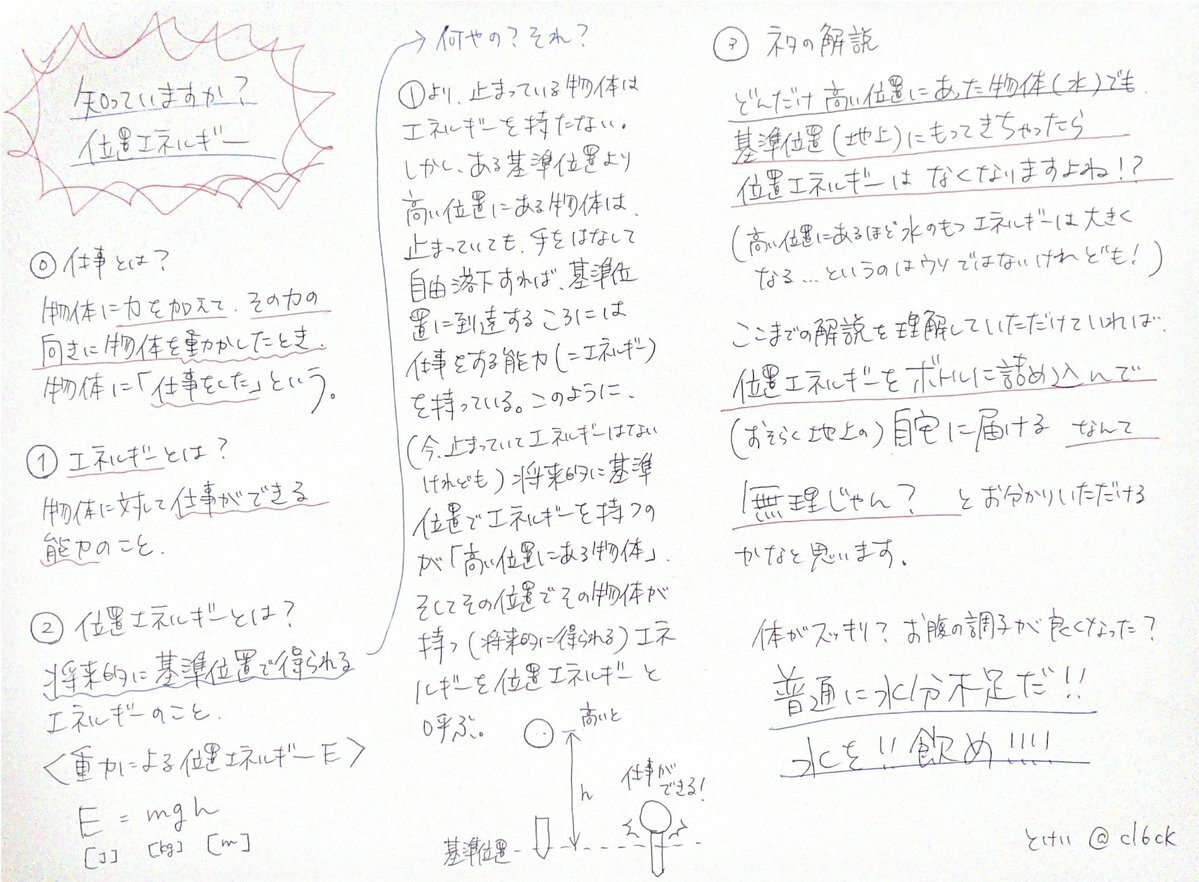 知っていますか?
位置エネルギー
⓪ 仕事とは?
物体に力を加えて、その力の
向きに物体を動かしたとき、
物体に「仕事をした」という。
① エネルギーとは?
物体に対して仕事ができる
能力のこと.
② 位置エネルギーとは?
将来的に基準位置で得られる
エネルギーのこと.
<重力による位置エネルギーE>
E = mgh
[J] [kg] [m]
→何やの?それ?
①より、止まっている物体は
エネルギーを持たない。
しかし、ある基準位置より
高い位置にある物体は、
止まっていても、手をはなして
自由落下すれば、基準位
置に到達するころには
仕事をする能力(=エネルギー)
を持っている。このように、
(今、止まっていてエネルギーはない
けれども)将来的に基準
位置でエネルギーを持つの
が「高い位置にある物体」.
そしてその位置でその物体が
持つ(将来的に得られる)エネ
ルギーを位置エネルギーと
呼ぶ。
高いと
h
仕事が
できる!
基準位置
③ ネタの解説
どんだけ高い位置にあった物体(水)でも.
基準位置(地上)にもってきちゃったら
位置エネルギーはなくなりますよね!?
(高い位置にあるほど水のもつエネルギーは大きく
なる...というのはウソではないけれども!)
ここまでの解説を理解していただけていれば.
位置エネルギーをボトルに詰め込んで
(おそらく地上の)自宅に届けるなんて
無理じゃん?とお分かりいただける
かなと思います.
体がスッキリ?お腹の調子が良くなった?
普通に水分不足だ!!
水を!!飲め!!!!
とけい @cl6ck